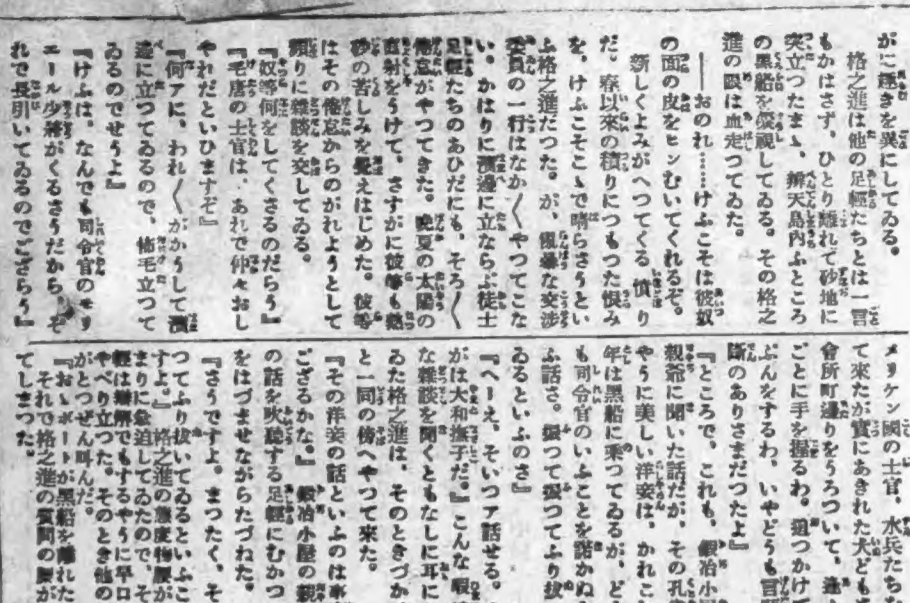 がに趣きを異にしてゐる。
格之進は他の足輕たちとは一言
もかはさず、ひとり離れて砂地に
突立つたまゝ、辨天島内ふところ
の黒船を凝視してゐる。その格之
進の眼は血走つてゐた。
――おのれ……けふこそは彼奴
の面の皮をヒンむいてくれるぞ。
新しくよみがへつてくる憤り
だ。春以來の積りにつもつた恨み
を、けふこそこゝで晴らさうとい
ふ格之進だつた。が、亂暴な交渉
委員の一行はなか〳〵やつてこな
い。かはりに濱邊に立ならぶ徒士
足輕たちのあひだにも、そろ〳〵
倦怠がやつてきた。晩夏の太陽の
直射をうけて、さすがに彼等も熱
砂の苦しみを覺えはじめた。彼等
はその倦怠からのがれようとして
頻りに雜談を交してゐる。
『奴等何をしてくさるのだらう』
『毛唐の士官は、あれで仲々おし
やれだといひますぞ』
『何アに、われ〳〵がかうして濱
邊に立つてゐるので、怖毛立つて
ゐるのでせうよ』
『けふは、なんでも司令官のモリ
エール少將がくるさうだから、そ
れで長引いてゐるのでござらう』
メリケン國の士官、水兵たちな
て來たが實にあきれた犬ども
會所町邊りをうろついて、逢
ごとに手を握るわ。狙つかけ
ぶんをするわ、いやどうも言語
斷のありさまだつたよ』
『ところで、これも、鍛冶小屋
親爺に聞いた話だが、その孔
やうに美しい洋妾は、かれこ
年は黒船に乘つてゐるが、ど
も司令官のいふことを諾かぬ
ふ話さ。振つて振つてふり拔
ゐるといふのさ』
『へーえ、そいつア話せる。
がは大和撫子だ。』こんな暇
な雜談を聞くともなしに耳に
ゐた格之進は、そのときづか
と一同の傍へやつて來た。
『その洋妾の話といふのは事
ござるかな。』鍛冶小屋の親
の話を吹聽する足輕にむかつ
をはづませながらたづねた。
『さうですよ。まつたく、そ
つてふり拔いてゐるといふこ
すよ。』格之進の態度物腰が
まりに急迫してゐたので、そ
輕は辯解でもするやうに早口
やべり立つた。そのとき他の
がとつぜん叫んだ。
『おゝボートが黒船を離れた
それで格之進の質問の腰が
てしまつた。